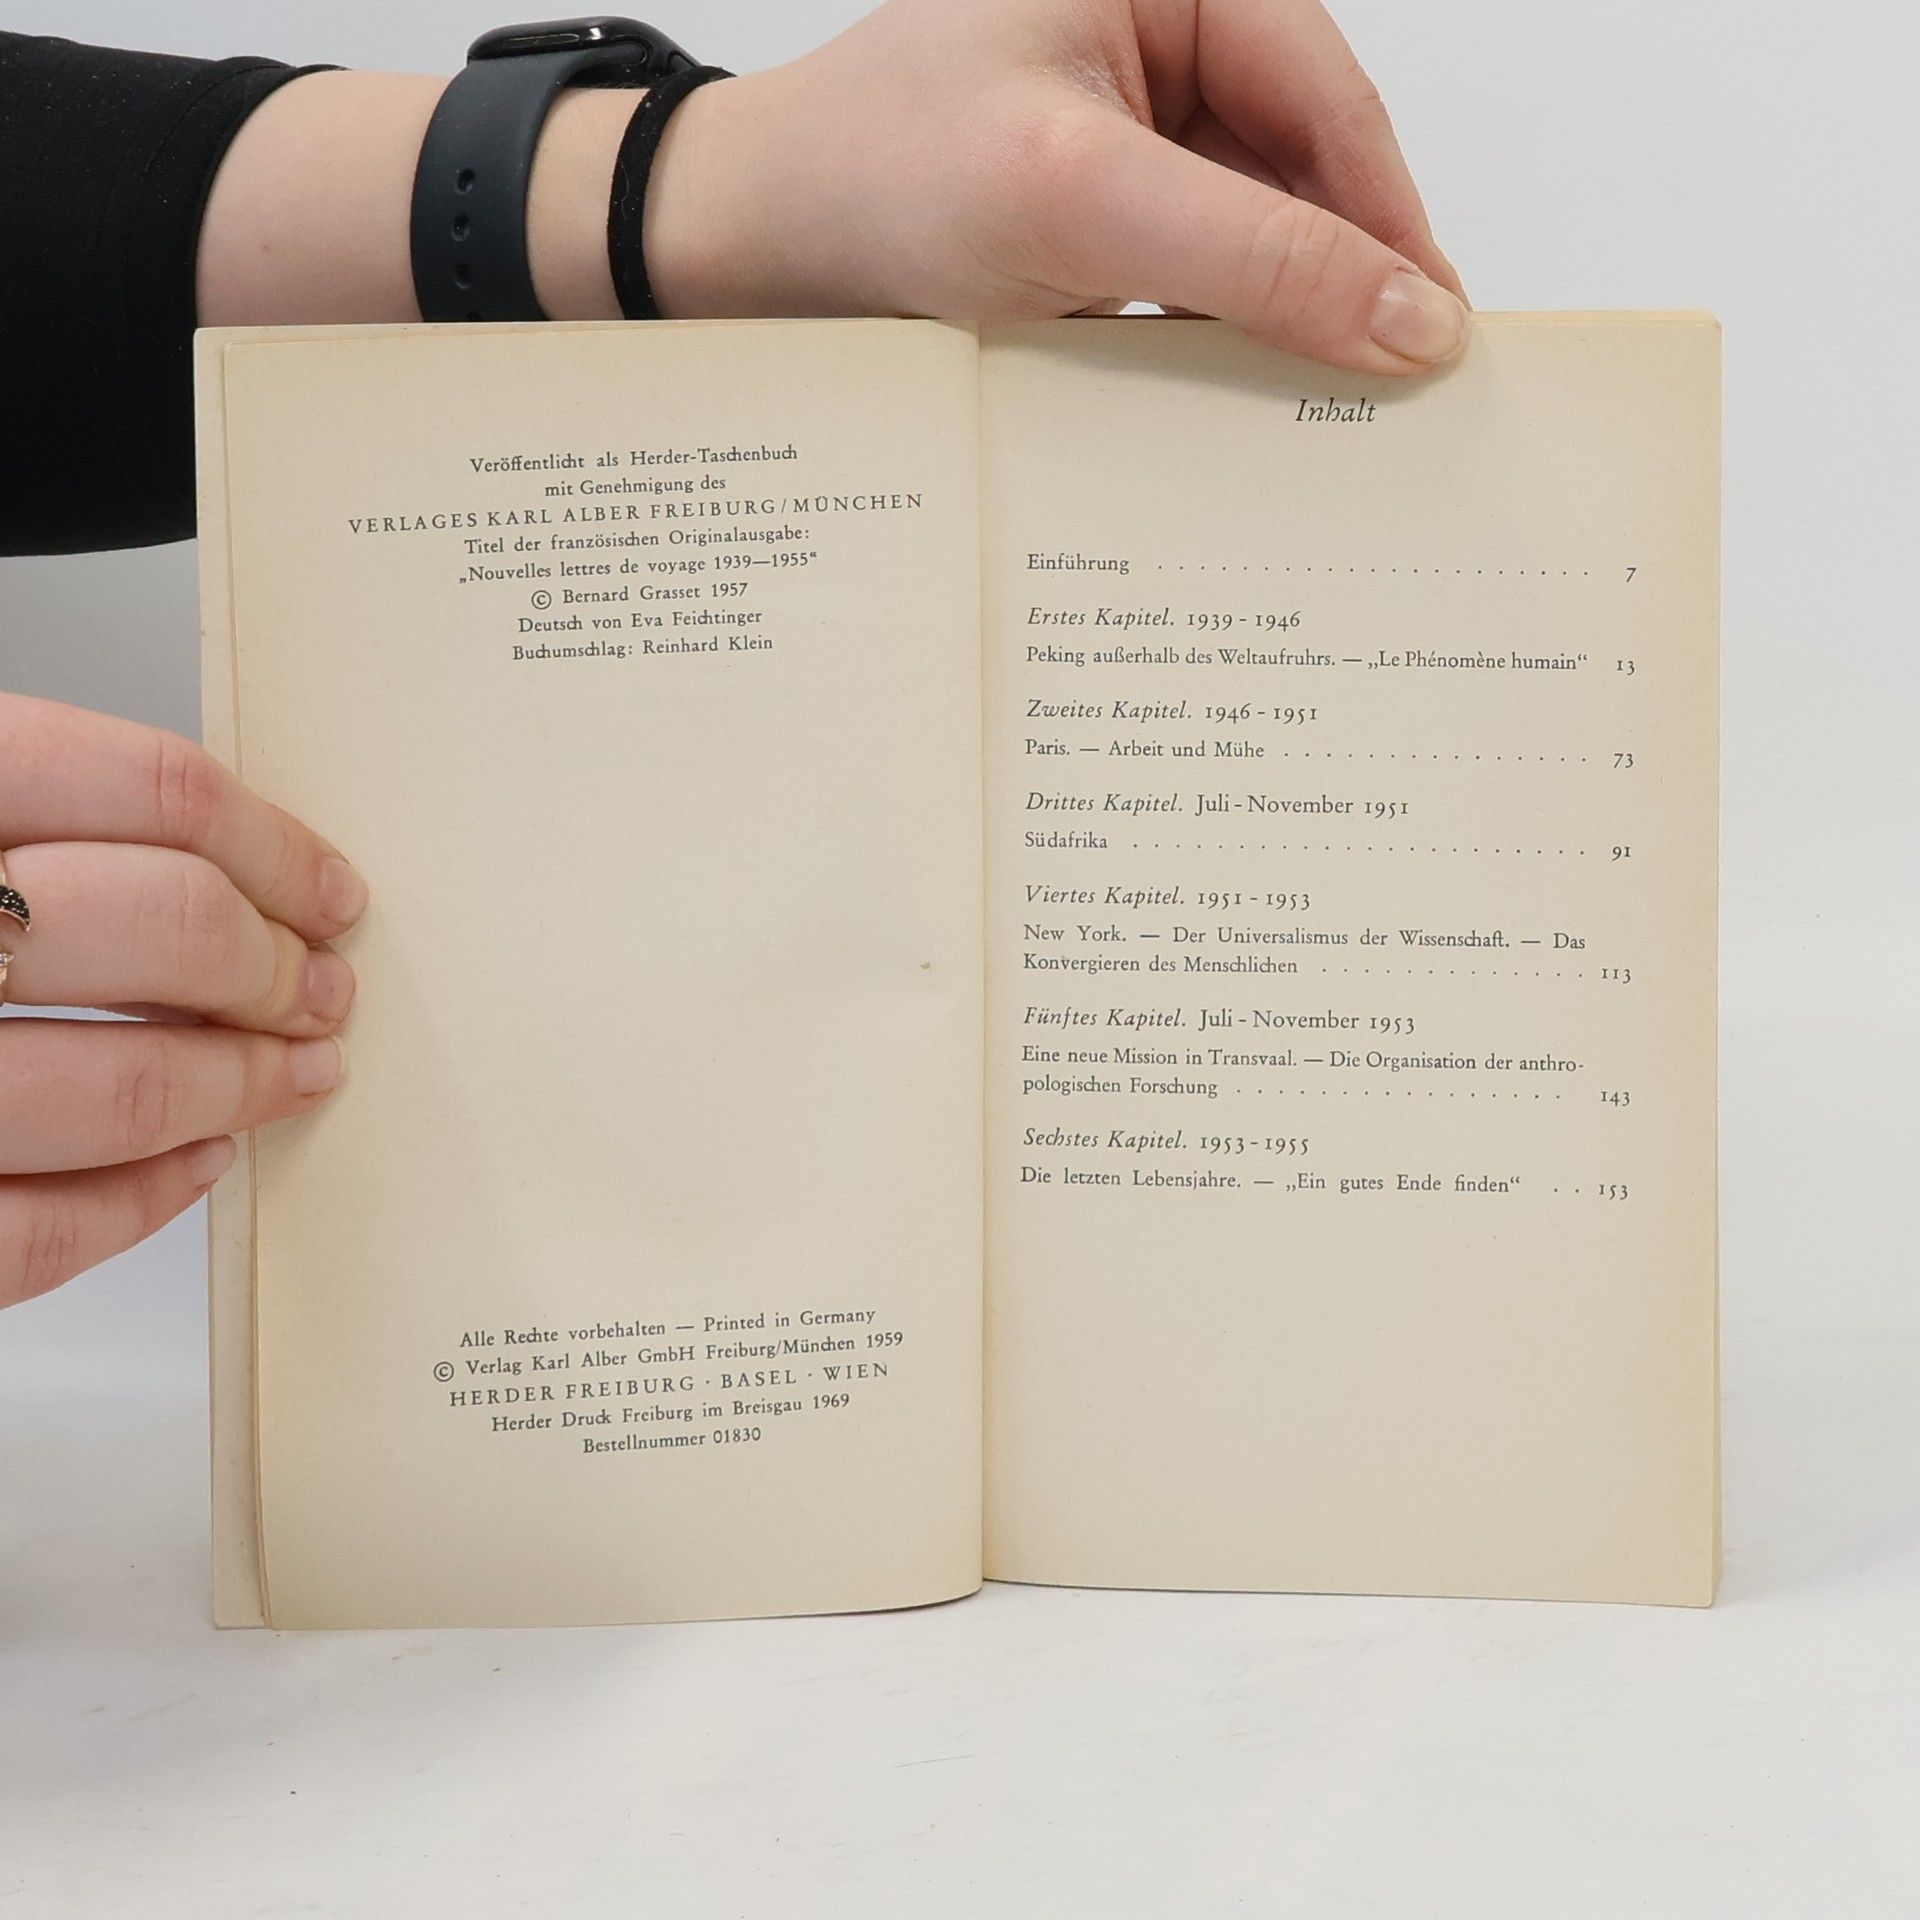 Veröffentlicht als Herder-Taschenbuch
mit Genehmigung des
VERLAGES KARL ALBER FREIBURG/MÜNCHEN
Titel der französischen Originalausgabe:
„Nouvelles lettres de voyage 1939—1955“
© Bernard Grasset 1957
Deutsch von Eva Feichtinger
Buchumschlag: Reinhard Klein
Alle Rechte vorbehalten — Printed in Germany
© Verlag Karl Alber GmbH Freiburg/München 1959
HERDER FREIBURG · BASEL · WIEN
Herder Druck Freiburg im Breisgau 1969
Bestellnummer 01830
Inhalt
Einführung . . . . . . . . . . . . . . . . . . . . . 7
Erstes Kapitel. 1939 - 1946
Peking außerhalb des Weltaufruhrs. — „Le Phénomène humain“ 13
Zweites Kapitel. 1946 - 1951
Paris. — Arbeit und Mühe . . . . . . . . . . . . . . . 73
Drittes Kapitel. Juli - November 1951
Südafrika . . . . . . . . . . . . . . . . . . . . . . 91
Viertes Kapitel. 1951 - 1953
New York. — Der Universalismus der Wissenschaft. — Das
Konvergieren des Menschlichen . . . . . . . . . . . . . 113
Fünftes Kapitel. Juli - November 1953
Eine neue Mission in Transvaal. — Die Organisation der anthro-
pologischen Forschung . . . . . . . . . . . . . . . . 143
Sechstes Kapitel. 1953 - 1955
Die letzten Lebensjahre. — „Ein gutes Ende finden“ . . 153